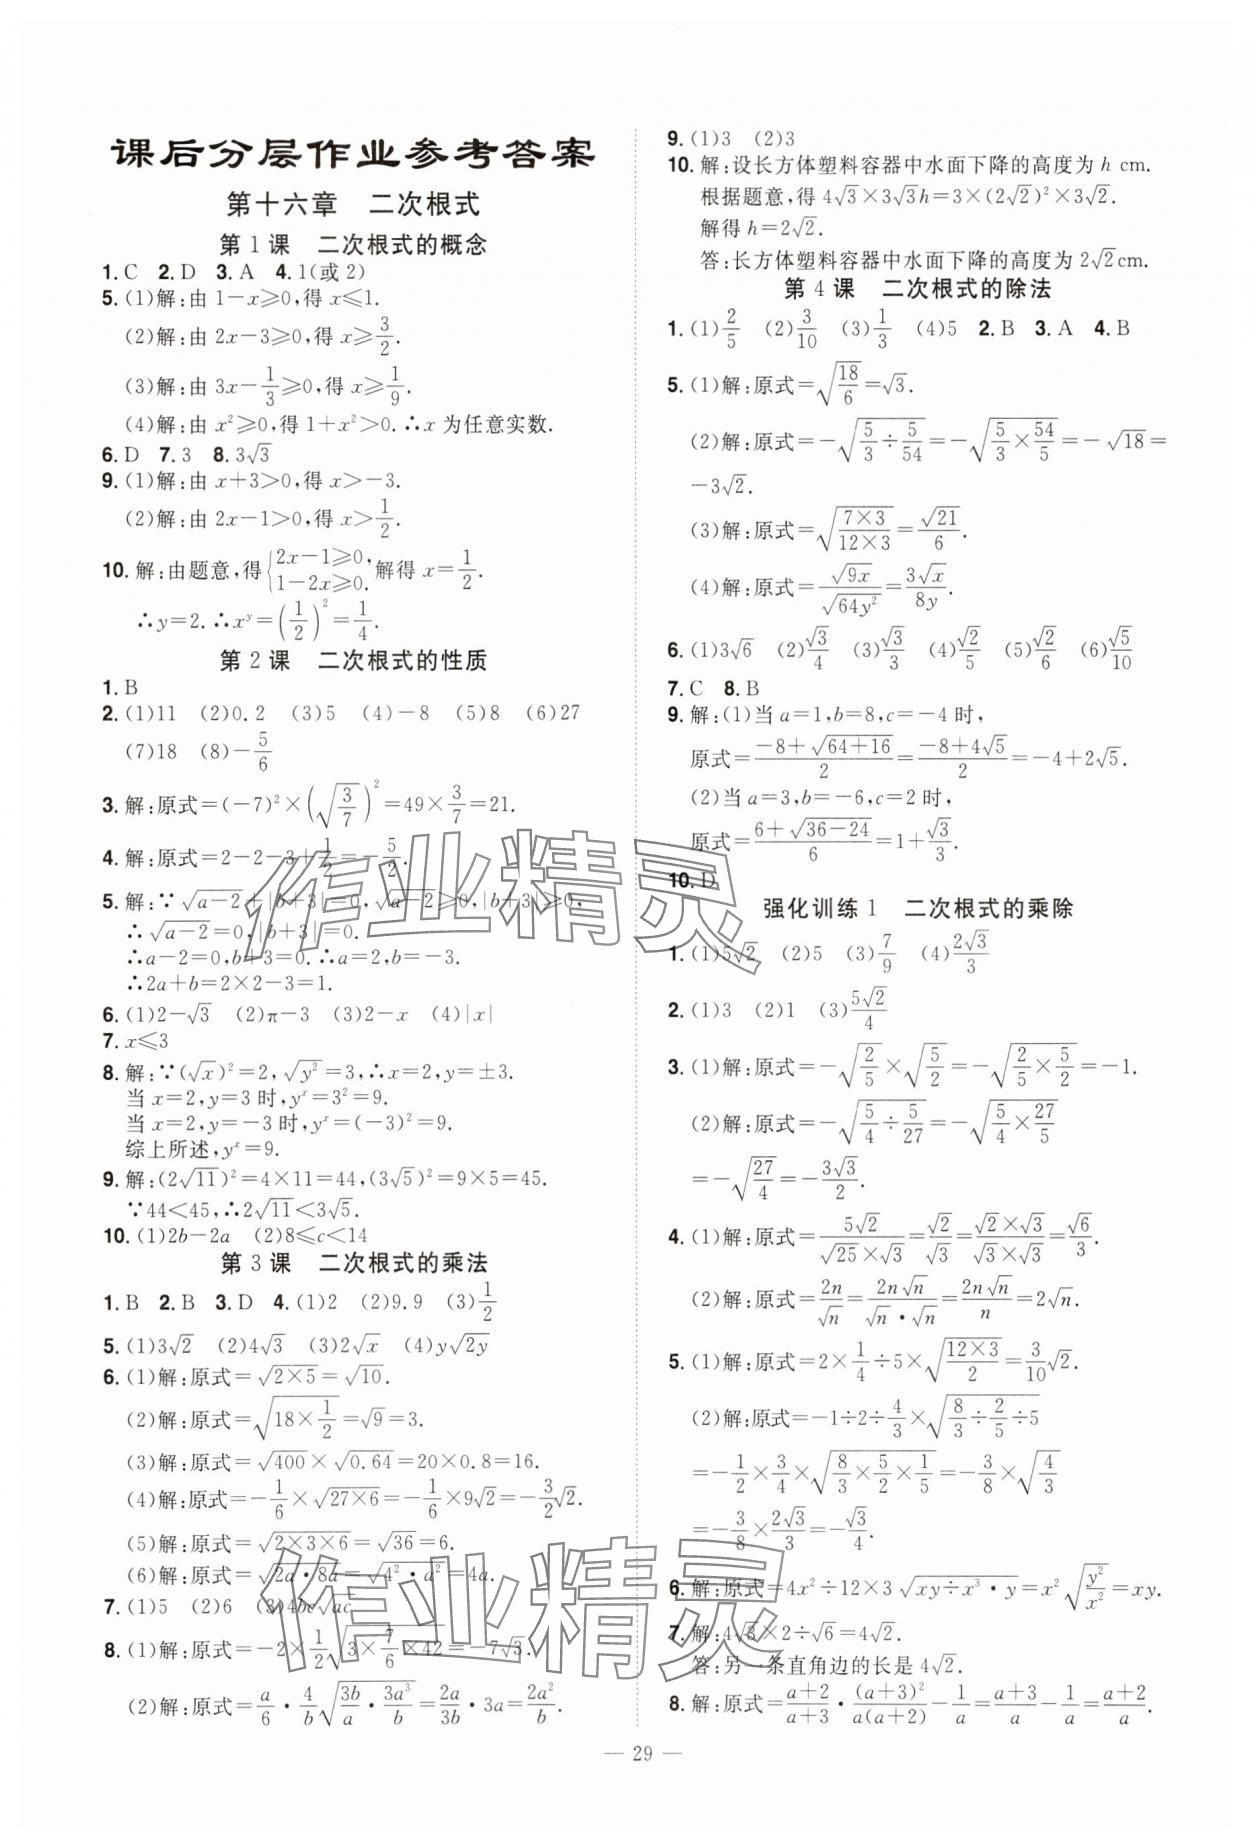 课后分层作业参考答案
第十六章　二次根式
第 1 课　二次根式的概念
1. C　2. D　3. A　4. 1(或 2)
5. (1)解:由 1−x≥0,得 x≤1.
(2)解:由 2x−3≥0,得 x≥3/2.
(3)解:由 3x−1/3≥0,得 x≥1/9.
(4)解:由 x²≥0,得 1+x²>0.∴x 为任意实数.
6. D　7. 3　8. 3√3
9. (1)解:由 x+3>0,得 x>−3.
(2)解:由 2x−1>0,得 x>1/2.
10. 解:由题意,得{2x−1≥0, 1−2x≥0. 解得 x=1/2.
∴y=2.∴xʸ=(1/2)²=1/4.
第 2 课　二次根式的性质
1. B
2. (1)11　(2)0.2　(3)5　(4)−8　(5)8　(6)27
(7)18　(8)−5/6
3. 解:原式=(−7)²×(√(3/7))²=49×3/7=21.
4. 解:原式=2−2−3+1/2=−5/2.
5. 解:∵√(a−2)+|b+3|=0,√(a−2)≥0,|b+3|≥0,
∴√(a−2)=0,|b+3|=0.
∴a−2=0,b+3=0.∴a=2,b=−3.
∴2a+b=2×2−3=1.
6. (1)2−√3　(2)π−3　(3)2−x　(4)|x|
7. x≤3
8. 解:∵(√x)²=2,√(y²)=3,∴x=2,y=±3.
当 x=2,y=3 时,yˣ=3²=9.
当 x=2,y=−3 时,yˣ=(−3)²=9.
综上所述,yˣ=9.
9. 解:(2√11)²=4×11=44,(3√5)²=9×5=45.
∵44<45,∴2√11<3√5.
10. (1)2b−2a　(2)8≤c<14
第 3 课　二次根式的乘法
1. B　2. B　3. D　4. (1)2　(2)9.9　(3)1/2
5. (1)3√2　(2)4√3　(3)2√x　(4)y√(2y)
6. (1)解:原式=√(2×5)=√10.
(2)解:原式=√(18×1/2)=√9=3.
(3)解:原式=√400×√0.64=20×0.8=16.
(4)解:原式=−1/6×√(27×6)=−1/6×9√2=−3/2√2.
(5)解:原式=√(2×3×6)=√36=6.
(6)解:原式=√(2a·8a)=√(4²·a²)=4a.
7. (1)5　(2)6　(3)4bc√(ac)
8. (1)解:原式=−2×1/2√(3×7/6×42)=−7√3.
(2)解:原式=a/6·4/b√(3b/a·3a³/b)=2a/3b·3a=2a²/b.
9. (1)3　(2)3
10. 解:设长方体塑料容器中水面下降的高度为 h cm.
根据题意,得 4√3×3√3h=3×(2√2)²×3√2.
解得 h=2√2.
答:长方体塑料容器中水面下降的高度为 2√2cm.
第 4 课　二次根式的除法
1. (1)2/5　(2)3/10　(3)1/3　(4)5　2. B　3. A　4. B
5. (1)解:原式=√(18/6)=√3.
(2)解:原式=−√(5/3÷5/54)=−√(5/3×54/5)=−√18=
−3√2.
(3)解:原式=√((7×3)/(12×3))=√21/6.
(4)解:原式=√(9x)/√(64y²)=3√x/8y.
6. (1)3√6　(2)√3/4　(3)√3/3　(4)√2/5　(5)√2/6　(6)√5/10
7. C　8. B
9. 解:(1)当 a=1,b=8,c=−4 时,
原式=(−8+√(64+16))/2=(−8+4√5)/2=−4+2√5.
(2)当 a=3,b=−6,c=2 时,
原式=(6+√(36−24))/6=1+√3/3.
10. D
强化训练 1　二次根式的乘除
1. (1)5√2　(2)5　(3)7/9　(4)2√3/3
2. (1)3　(2)1　(3)5√2/4
3. (1)解:原式=−√(2/5)×√(5/2)=−√(2/5×5/2)=−1.
(2)解:原式=−√(5/4÷5/27)=−√(5/4×27/5)
=−√(27/4)=−3√3/2.
4. (1)解:原式=5√2/(√25×√3)=√2/√3=(√2×√3)/(√3×√3)=√6/3.
(2)解:原式=2n/√n=2n√n/(√n·√n)=2n√n/n=2√n.
5. (1)解:原式=2×1/4÷5×√((12×3)/2)=3/10√2.
(2)解:原式=−1÷2÷4/3×√(8/3÷2/5÷5)
=−1/2×3/4×√(8/3×5/2×1/5)=−3/8×√(4/3)
=−3/8×2√3/3=−√3/4.
6. 解:原式=4x²÷12×3√(xy÷x³·y)=x²√(y²/x²)=xy.
7. 解:4√3×2÷√6=4√2.
答:另一条直角边的长是 4√2.
8. 解:原式=(a+2)/(a+3)·(a+3)²/(a(a+2))−1/a=(a+3)/a−1/a=(a+2)/a.
— 29 —
作业精灵
作业精灵